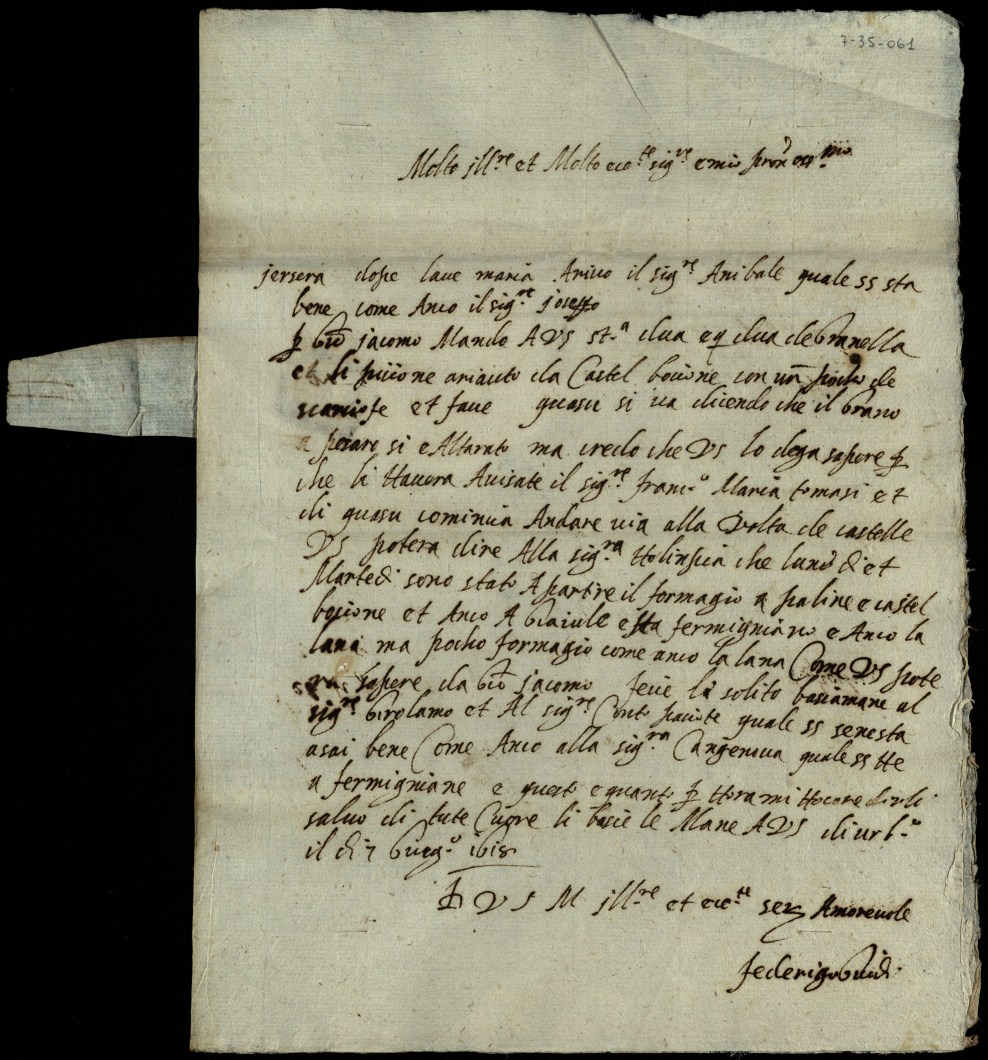 7-35-061
Molto jll.re et Molto ecc.te sig.re e mio
jersera dopo lave maria Arivo il sig.re Anibale quale ss sta
bene come Anco il sig.re joseffo
p jacomo Mando A VS st.a dua e q dua de Granella
et li picione ariauto da Castel bocione con un pocho de
et fave quasu si va dicendo che il Grano
a pesaro si e Altarato ma credo che VS lo dega sapere p
che li Havera Avisate il sig.re franc.o Maria tomasi et
di quasu comincia Andare via alla Volta de castelle
VS potera dire Alla sig.ra che lune di et
Martedi sono stato A partire il formagio a paline e castel
bocione et Anco A e sta fermigniano e Anco la
lana ma pocho formagio come anco la lana Come VS pote
ra sapere da jacomo fece li solito basciamane al
sig.re Girolamo et Al sig.re Conto pacioto quale ss senesta
asai bene Come Anco alla sig.ra Cangenova quale ss He
a fermigniane e questo e quanto p Hora mi Hocore dirli
salvo di tute Cuore li bacie le Mane A VS di urb.o
il di 7 Giug.o 1618
D VS M jll.re et ecc.te ser Amorevole
federigo Guidi